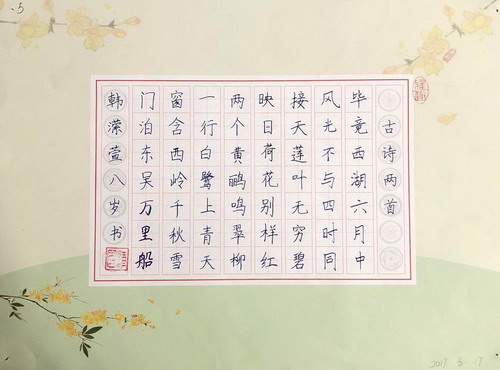 古诗两首
毕竟西湖六月中
风光不与四时同
接天莲叶无穷碧
映日荷花别样红
两个黄鹂鸣翠柳
一行白鹭上青天
窗含西岭千秋雪
门泊东吴万里船
韩溁萱八岁书
5